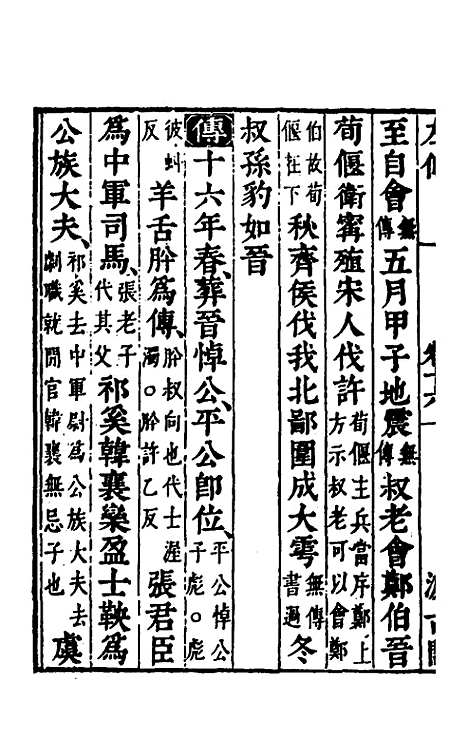 至自會無傳五月甲子地震無傳叔老會鄭伯晉
荀偃衛甯殖宋人伐許荀偃主兵當序鄭上方示叔老可以會鄭
伯故荀偃在下秋齊侯伐我北鄙圍成大雩無傳書過冬
叔孫豹如晉
傳十六年春葬晉悼公平公卽位平公悼公子彪○彪
彼虯反羊舌肸爲傳肸叔向也代士渥濁○肸許乙反張君臣
爲中軍司馬張老子代其父祁奚韓襄欒盈士鞅爲
公族大夫祁奚去中軍尉爲公族大夫去劇職就閒官韓襄無忌子也虞